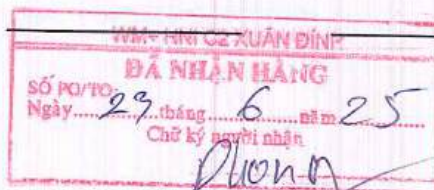 WM+ HNI C2 XUÂN ĐỈNH
ĐÃ NHẬN HÀNG
SỐ PO/TO:
Ngày.....23.....tháng.....6.....năm.....25.....
Chữ ký người nhận